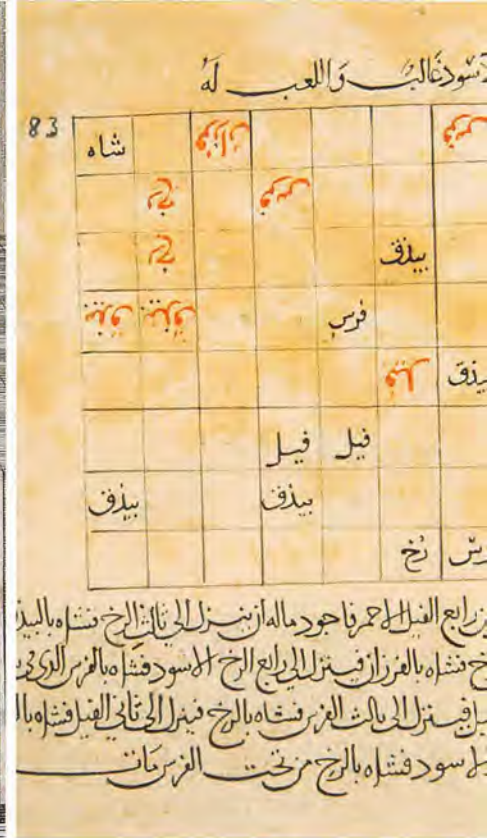 لاسود غالب واللعب له
83
شاه فرزان فرس
رخ فرس
رخ بيذق
بيذق بيذق فرس
فيل بيذق
فيل فيل
بيذق بيذق
رخ فرس
رابع الفيل الاحمر فاجود ماله ان ينزل الى ثالث الرخ فشاه بالبيذ
فشاه بالفرزان فينزل الى رابع الرخ الاسود فشاه بالفرس الذى
فينزل الى ثالث الفرس فشاه بالرخ فينزل الى ثانى الفيل فشاه
الاسود فشاه بالرخ من تحت الفرس مات